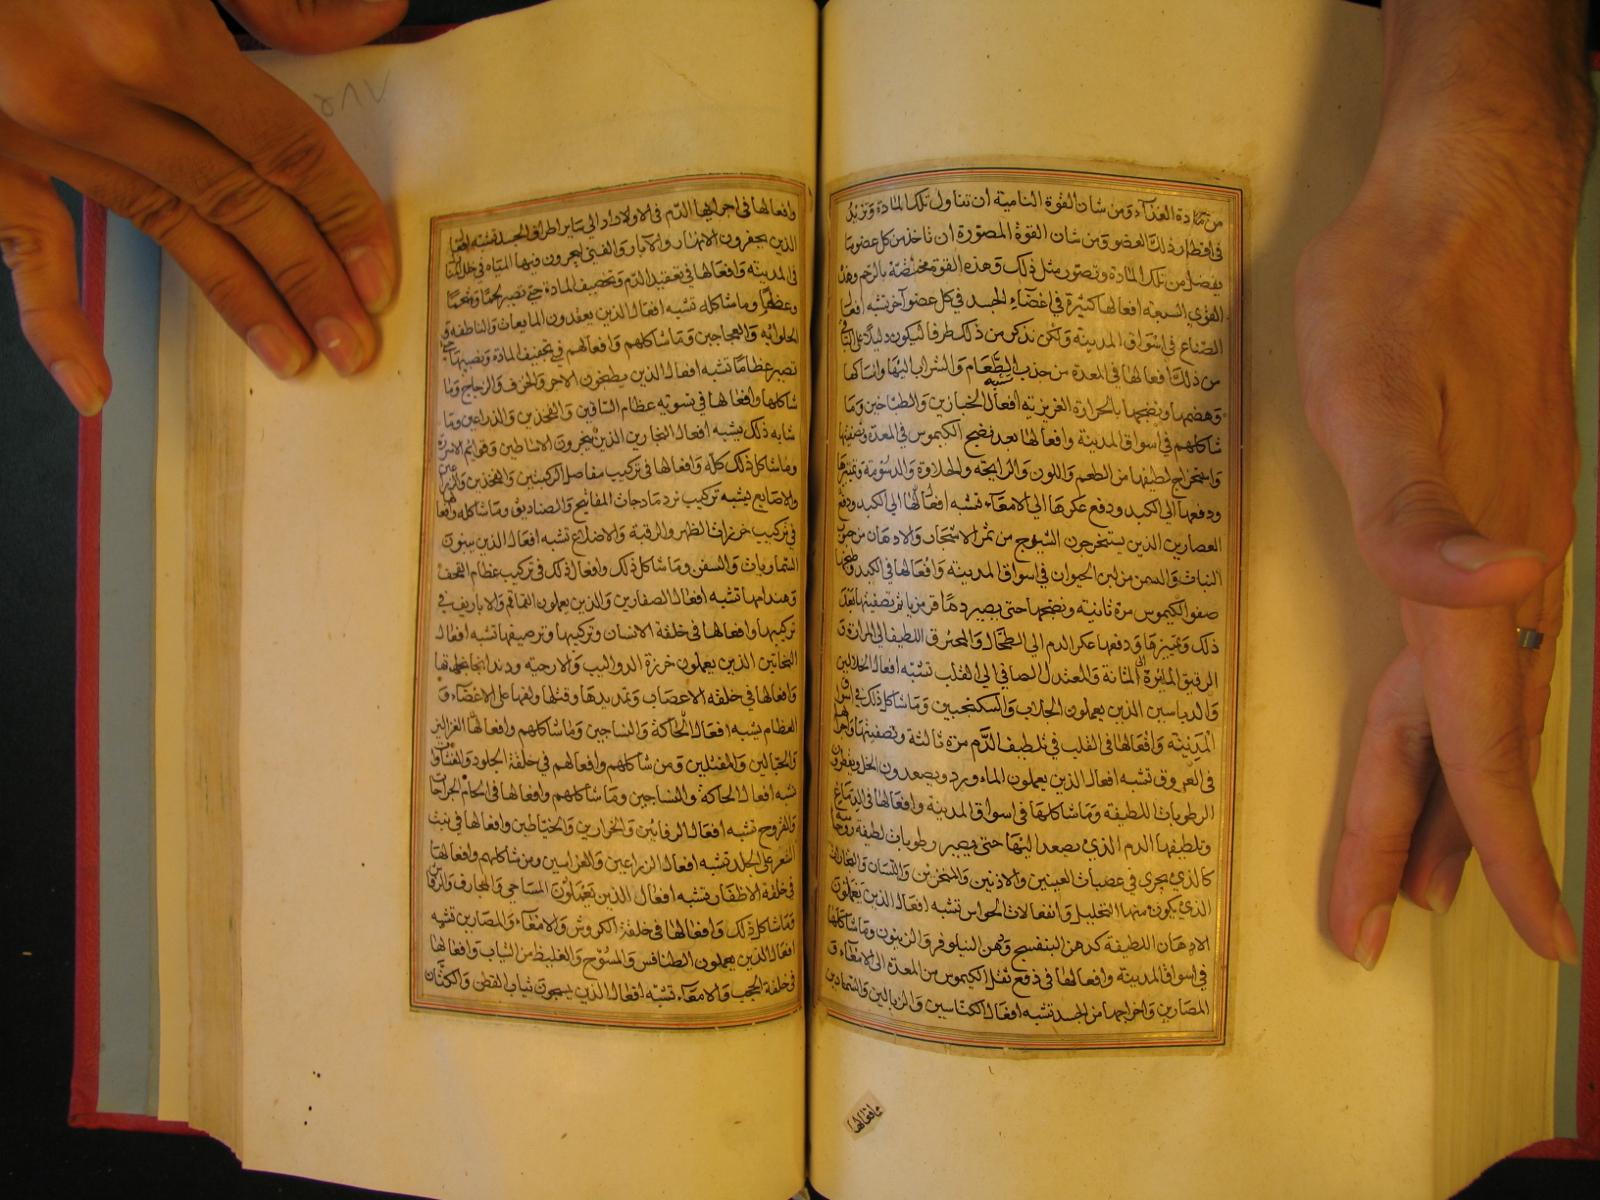 من مادة الغذآء ومن شان القوة النامية ان تتناول تلك المادة وتزيد
في اقطار ذلك العضو ومن شان القوة المصورة ان تاخذ من كل عضو ما
يفضل من تلك المادة وتصور مثل ذلك وهذه القوة مختصة بالرحم وهذه
القوي السبعة افعالها كثيرة في اعضآء الجسد في كل عضو آخر تشبه افعال
الصناع في اسواق المدينة ولكن نذكر من ذلك طرفا ليكون دليلا على الباقي
من ذلك افعالها في المعدة من جذب الطعام والشراب اليها وامساكها
وهضمها ونضجها بالحرارة الغريزيه تشبه افعال الخبازين والطباخين وما
شاكلهم في اسواق المدينة وافعالها بعد نضج الكيموس في المعدة وتصفيتها
واستخراج لطيفها من الطعم واللون والرايحة والحلاوة والدسومة وتميزها
ودفعها الي الكبد ودفع عكرها الي الامعآء تشبه افعالها الي الكبد ودفع
العصارين الذين يستخرجون الشيرج من ثمر الاشجار والادهان من حبوب
النبات والسمن من لبن الحيوان في اسواق المدينه وافعالها في الكبد وطبخها
صفو الكيموس مرة ثانية ونضجها حتى يصير دما قرمزيا ثم تصفيتها بعد
ذلك وتميزها ودفعها عكر الدم الي الطحال والمحترق اللطيف الي المرارة و
الرقيق المائية الى المثانة والمعتدل الصافي الي القلب تشبه افعال الجلابين
والدباسين الذين يعملون الجلاب والسكنجبين وما شاكل ذلك في اسواق
المدينة وافعالها في القلب في تلطيف الدم مرة ثالثة وتصفيتها واجرائها
في العروق تشبه افعال الذين يعملون الماء ورد ويصعدون الخل ويقطرون
الرطوبات اللطيفة وما شاكلها في اسواق المدينة وافعالها في الدماغ
وتلطيفها الدم الذي يصعد اليها حتى يصير رطوبات لطيفة روحا
كالذي يجري في عصبات العينين والاذنين والمنخرين واللسان والبخارات
الذي يكون منها التخليل وانفعالات الحواس تشبه افعال الذين يعملون
الادهان اللطيفة كدهن البنفسج ودهن النيلوفر والزيتون وما شاكلها
في اسواق المدينة وافعالها في دفع ثفل الكيموس من المعدة الى الامعآء و
المصارين واخراجها من الجسد تشبه افعال الكناسين والزبالين والسمادين
وافعالها
وافعالها في اجرايها الدم في الاوراد الي ساير اطراف الجسد تشبه افعال
الذين يحفرون الانهار والآبار والقني ليجرون فيها المياه في خلال
في المدينة وافعالها في تعقيد الدم وتجفيف المادة حتى تصير لحما وشحما
وعظما وما شاكله تشبه افعال الذين يعقدون المايعات والناطفه و
الحلوائيه والعجاجين وما شاكلهم وافعالهم في تجفيف المادة وتصيرها حتى
تصير عظاما تشبه افعال الذين يطبخون الاجر والخزف والزجاج وما
شاكلها وافعالها في تسويه عظام الساقين والفخذين والذراعين وما
شابه ذلك يشبه افعال النجارين الذين ينجرون الاساطين وقوائم الاسرة
وما شاكل ذلك كله وافعالها في تركيب مفاصل الركبتين والفخذين والذراعين
والاصابع يشبه تركيب نرمادجات المفاتيح والصناديق وما شاكله وافعالها
في تركيب خرزات الظهر والرقبة والاضلاع تشبه افعال الذين يبنون
السماريات والسفن وما شاكل ذلك وافعال ذلك في تركيب عظام القحف
وهندامها تشبه افعال الصفارين والذين يعملون القماقم والاباريق في
تركيبها وافعالها في خلقة الاسنان وتركيبها وترصيفها تشبه افعال
النحاتين الذين يعملون خرزة الدواليب والارحية ودندانجاتها
وافعالها في خلقه الاعصاب وتمديدها وفتلها ولفها على الاعضآء و
العظام يشبه افعال الحاكة والنساجين وما شاكلهم وافعالها الغزالين
والحبالين والمفتلين ومن شاكلهم وافعالهم في خلقة الجلود والغشاوات
تشبه افعال الحاكة والنساجين وما شاكلهم وافعالها في الحام الجراحات
والقروح تشبه افعال الرفائين والخرازين والخياطين وافعالها في نبت
الشعر على الجلد تشبه افعال الزراعين والغراسين ومن شاكلهم وافعالها
في خلقة الاظفار تشبه افعال الذين يعملون المساحي والمجارف والرفاس
وما شاكل ذلك وافعالها في خلقة الكروش والامعآء والمصارين تشبه
افعال الذين يعملون الطنافس والمسوح والغليظ من الثياب وافعالها
في خلقة الحجب والامعآء تشبه افعال الذين ينسجون ثياب القطن والكتان